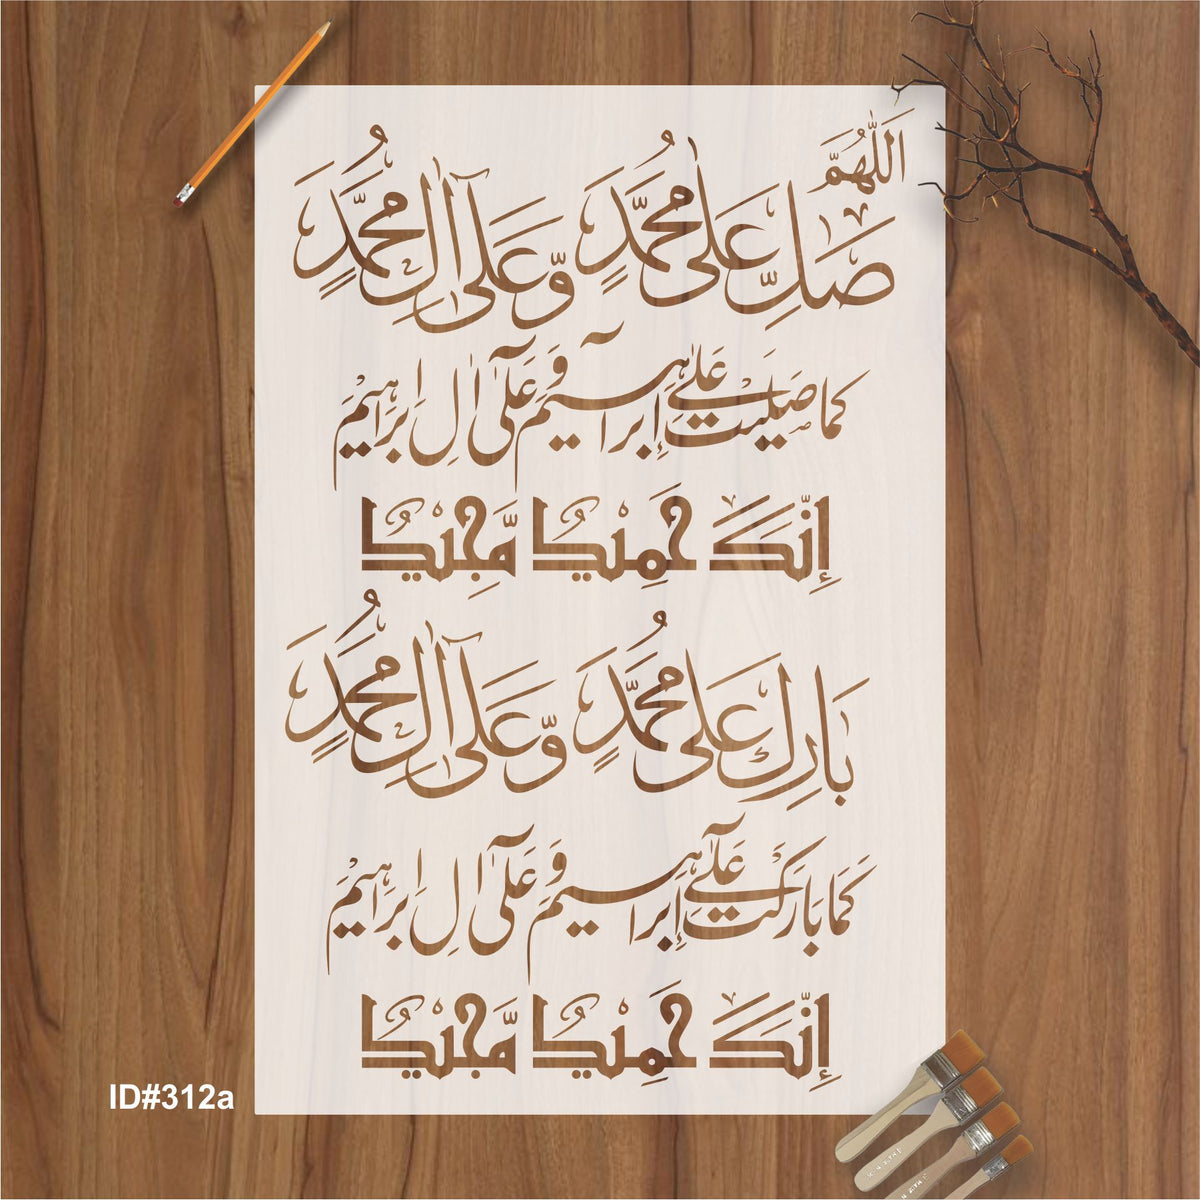 اَللّٰهُمَّ
صَلِّ عَلٰى مُحَمَّدٍ وَّعَلٰى آلِ مُحَمَّدٍ
كما صَلَيت عَلٰے إبراهيم وَعَلٰى اٰلِ إبراهيمَ
إنّكَ حَمِيْدٌ مَّجِيْدٌ
بَارِك عَلٰى مُحَمَّدٍ وَّعَلٰى آلِ مُحَمَّدٍ
كَمَا بَارَكَت عَلٰے إبراهيم وَعَلٰى اٰلِ إبراهيمَ
إنّكَ حَمِيْدٌ مَّجِيْدٌ
ID#312a